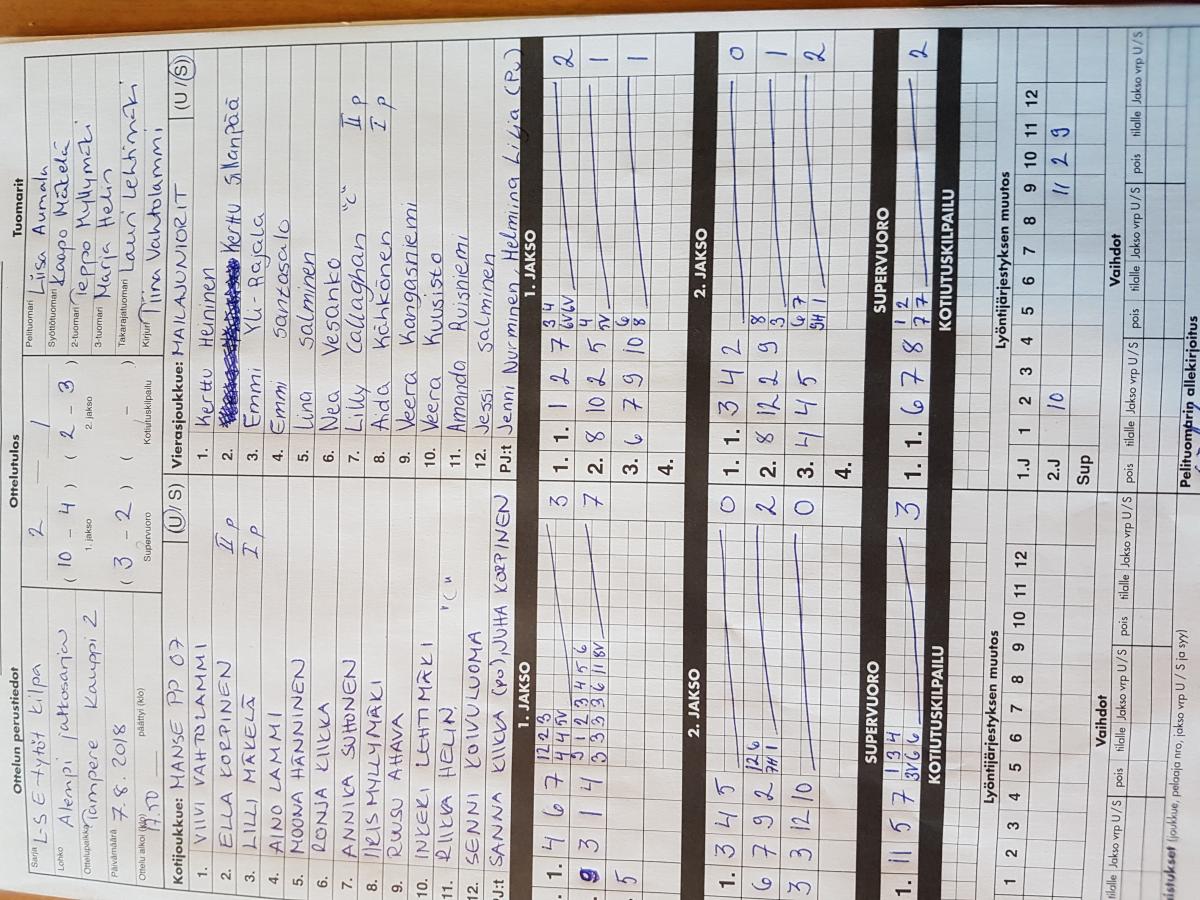 Ottelun perustiedot
Sarja L-S E-tytöt kilpa
Lohko Alempi jatkosarja
Ottelupaikka Tampere Kauppi 2
Päivämäärä 7.8.2018
Ottelu alkoi (klo) 17.50 päättyi (klo)
Ottelutulos
2 1
( 10 - 4 ) ( 2 - 3 )
1. jakso 2. jakso
( 3 - 2 ) ( - )
Supervuoro Kotiutuskilpailu
Tuomarit
Pelituomari Liisa Aumala
Syöttötuomari Kaapo Mäkelä
2-tuomari Teppo Myllymäki
3-tuomari Marja Helin
Takarajatuomari Lauri Lehtimäki
Kirjuri Tiina Vahtolammi
Kotijoukkue: MANSE PP 07 (U/S)
1. VIIVI VAHTOLAMMI
2. ELLA KORPINEN II p
3. LILLI MÄKELÄ I p
4. AINO LAMMI
5. MOONA HÄNNINEN
6. RONJA KIIKKA
7. ANNIKA SUHONEN
8. IIRIS MYLLYMÄKI
9. RUUSU AHAVA
10. INKERI LEHTIMÄKI
11. RIIKKA HELIN "C"
12. SENNI KOIVULUOMA
PJ:t SANNA KIIKKA (PV), JUHA KORPINEN
Vierasjoukkue: MAILAJUNIORIT (U/S)
1. Kerttu Heininen
2. Kerttu Sillanpää
3. Emmi Yli-Rajala
4. Emmi Santasalo
5. Lina Salminen
6. Nea Vesanko
7. Lilly Callaghan "C" II p
8. Aida Kähkönen I p
9. Veera Kangasniemi
10. Veera Kuusisto
11. Amanda Ruisniemi
12. Jessi Salminen
PJ:t Jenni Nurminen, Helmiina Lilja (PV)
1. JAKSO
1. 4 6 7 3
9 3 1 4 7
5
1. JAKSO
1. 1. 1 2 7 2
2. 8 10 2 5 1
3. 6 7 9 10 1
4.
2. JAKSO
1. 3 4 5 0
6 7 9 2 2
3 3 12 10 0
2. JAKSO
1. 1. 3 4 2 0
2. 8 12 2 9 1
3. 4 4 5 2
4.
SUPERVUORO
1. 11 5 7 3
SUPERVUORO
1. 1. 6 7 8 2
KOTIUTUSKILPAILU
KOTIUTUSKILPAILU
Lyöntijärjestyksen muutos
1 2 3 4 5 6 7 8 9 10 11 12
Lyöntijärjestyksen muutos
1.J 1 2 3 4 5 6 7 8 9 10 11 12
2.J 10 11 2 9
Sup
Vaihdot
tilalle Jakso vrp U/S pois tilalle Jakso vrp U/S pois tilalle Jakso vrp U/S
Vaihdot
pois tilalle Jakso vrp U/S pois tilalle Jakso vrp U/S pois tilalle Jakso vrp U/S
(joukkue, pelaaja nro, jakso vrp U / S ja syy)
Pelituomarin allekirjoitus